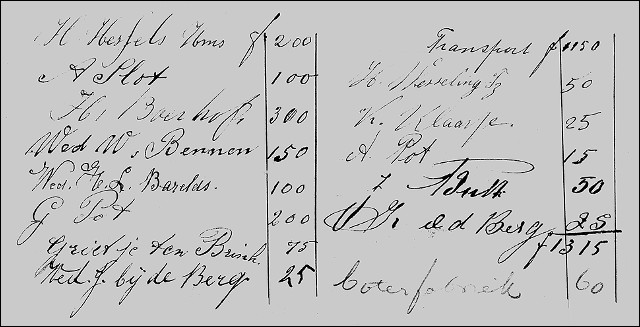 H Hessels Hms f 200
A Slot 100
H. Boerhof. 300
Wed W. Bennen 150
Wed. H. L. Barelds. 100
G Pot 200
Grietje ten Brink. 75
Wed. J. bij de Berg 25
Transport f 1150
H. Wesseling Fz 50
K. Klaasje. 25
A. Pot 15
50
d Berg 25
f 1315
Coterfabriek 60